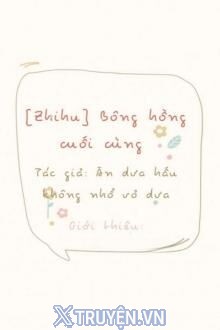 [Zhihu] Bông hồng
cuối cùng
Tác giả: Ăn dưa hấu
không nhổ vỏ dưa
Giới thiệu:
XTRUYỆN.VN